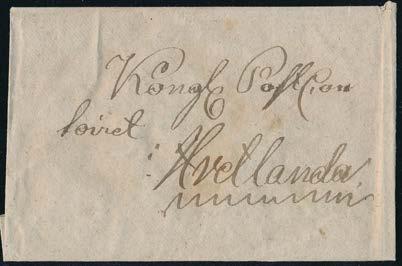 Kongl Post Con
toiret
: Hvetlanda,